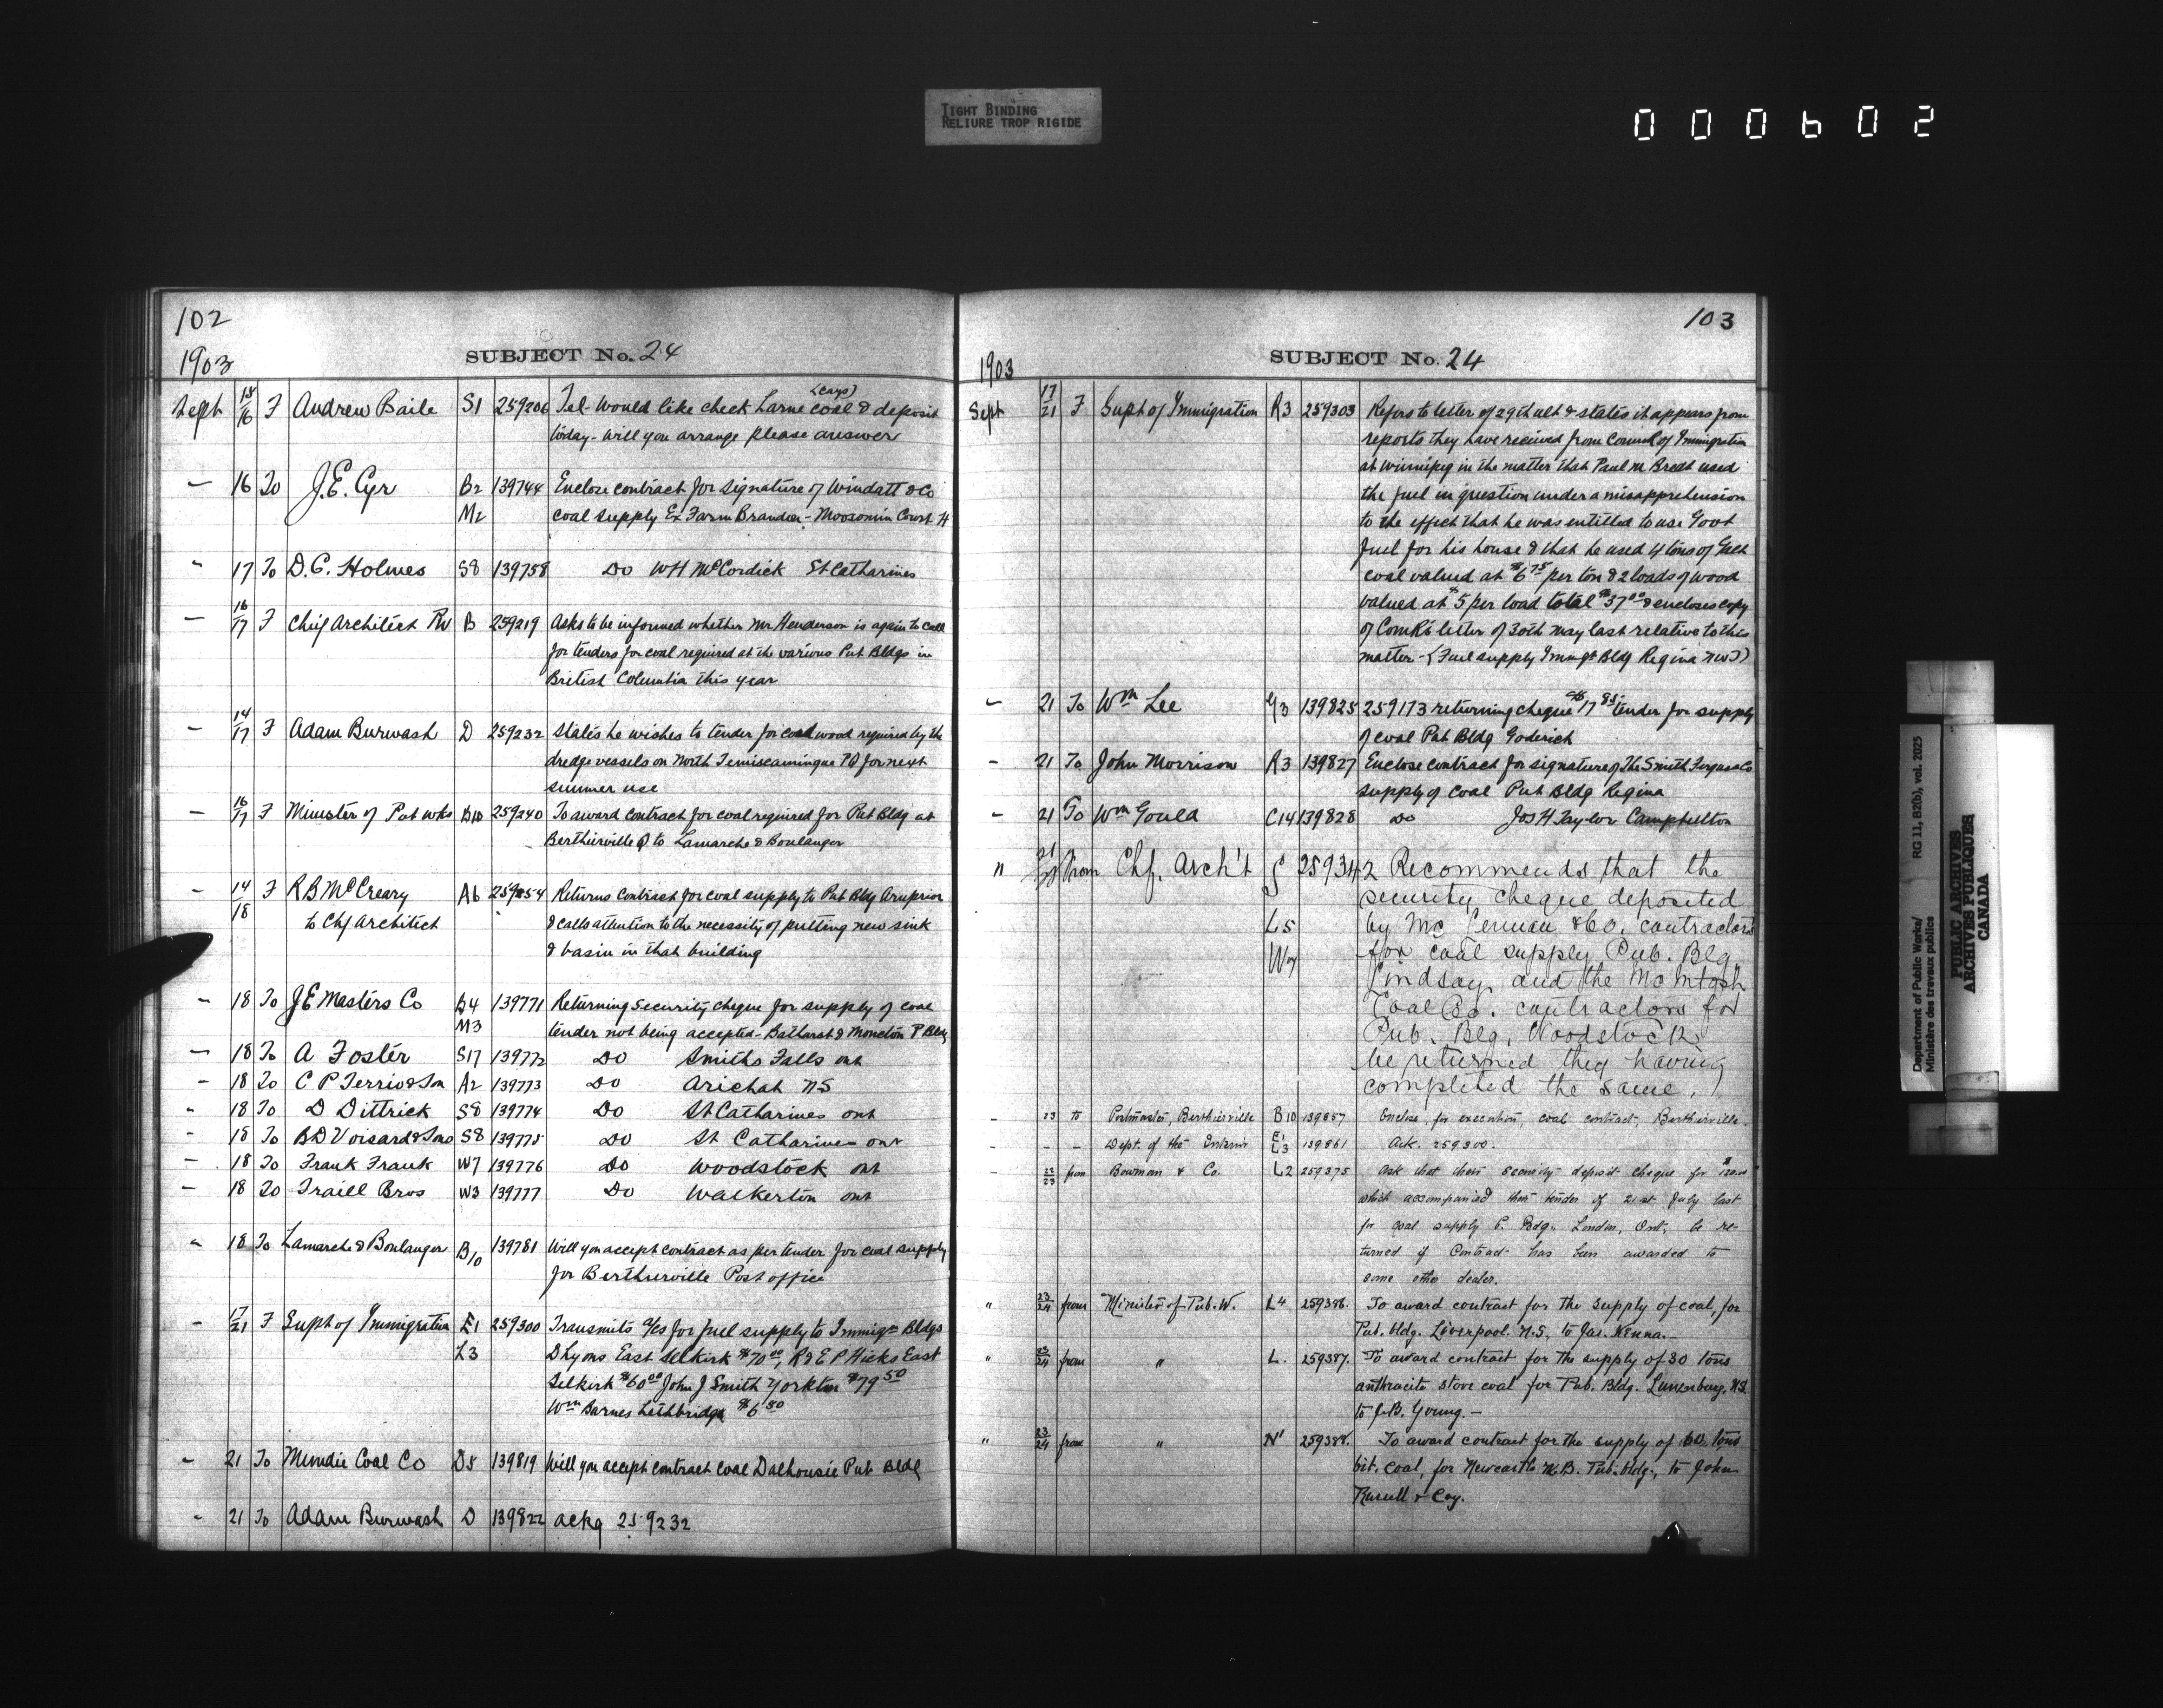 TIGHT BINDING
RELIURE TROP RIGIDE
000602
102
1903
SUBJECT No. 24
Sept 15/16 F Andrew Baile S1 259206 Tel- Would like check Larne coal & deposit
today - will you arrange please answer
— 16 To J.E. Cyr B2 139744 Enclose contract for signature of Windatt & Co
M2 coal supply Ex Farm Brandon - Moosomin Court H
" 17 To D.C. Holmes S8 139758 Do WH McCordick St Catharines
— 16/17 F Chief Architect PW B 259219 Asks to be informed whether Mr. Henderson is again to call
for tenders for coal required at the various Pub Bldgs in
British Columbia this year
— 14/17 F Adam Burwash D 259232 States he wishes to tender for cord wood required by the
dredge vessels on North Temiscamingue PQ for next
summer use
— 16/17 F Minister of Pub wks B10 259240 To award contract for coal required for Pub Bldg at
Berthierville Q to Lamarche & Boulanger
— 14/18 F R B McCreary A6 259254 Returns contract for coal supply to Pub Bldg Arnprior
to Chf Architect & calls attention to the necessity of putting new sink
& basin in that building
— 18 To J E Masters Co B4 139771 Returning Security cheque for supply of coal
M3 tender not being accepted - Bathurst & Moncton P Bldg
— 18 To A Foster S17 139772 Do Smiths Falls ont
— 18 To C P Terrio & Son A2 139773 Do Arichat NS
" 18 To D Dittrick S8 139774 Do St Catharines ont
— 18 To B D Voisard & Sons S8 139775 Do St Catharines ont
— 18 To Frank Frank W7 139776 Do Woodstock ont
— 18 To Traill Bros W3 139777 Do Walkerton ont
" 18 To Lamarche & Boulanger B10 139781 Will you accept contract as per tender for coal supply
for Berthierville Post office
— 17/21 F Supt of Immigration E1 259300 Transmits a/cs for fuel supply to Immign Bldgs
L3 D Lyons East Selkirk $70 00, R & E P Hicks East
Selkirk $60 00 John J Smith Yorkton $79 50
Wm Barnes Lethbridge $6 50
— 21 To Mundie Coal Co D5 139819 Will you accept contract coal Dalhousie Pub Bldg
- 21 To Adam Burwash D 139822 ackg 259232
103
1903
SUBJECT No. 24
Sept 17/21 F Supt of Immigration R3 259303 Refers to letter of 29th ult & states it appears from
reports they have received from Council of Immigration
at Winnipeg in the matter that Paul M. Bredt used
the fuel in question under a misapprehension
to the effect that he was entitled to use Govt
fuel for his house & that he used 4 tons of Galt
coal valued at $6 75 per ton & 2 loads of wood
valued at $5 per load total $37 00 & encloses copy
of Comr's letter of 30th May last relative to this
matter - (Fuel supply Immgt Bldg Regina NWT)
— 21 To Wm Lee G3 139825 259173 returning cheque $17 85 tender for supply
of coal Pub Bldg Goderich
- 21 To John Morrison R3 139827 Enclose contract for signature of The Smith Ferguson Co
supply of coal Pub Bldg Regina
- 21 To Wm Gould C14 139828 Do Jos H Taylor Campbellton
" From Chf. Arch't 259342 Recommends that the
security cheque deposited
L5 by Mc Lennan & Co. contractors
W7 for coal supply Pub. Blg.
Lindsay and the McIntosh
Coal Co. contractors for
Pub. Blg. Woodstock
be returned they having
completed the same.
- 23 to Postmaster, Berthierville B10 139857 Enclose, for execution, coal contract, Berthierville.
- - - Dept. of the Interior E1 L3 139861 Ack. 259300.
- 22/23 from Bowman & Co. L2 259375 Ask that their security deposit cheque for $120.00
which accompanied their tender of 21st July last
for coal supply P. Bdg. London, Ont, be re-
turned if contract has been awarded to
some other dealer.
" 23/24 from Minister of Pub. W. L4 259386. To award contract for the supply of coal, for
Pub. bldg. Liverpool. N.S., to Jas. Kenna.—
" 23/24 from " L. 259387. To award contract for the supply of 30 tons
anthracite stove coal for Pub. Bldg. Lunenburg, N.S.
to J.B. Young. —
" 23/24 from " N1 259388. To award contract for the supply of 60 tons
bit. coal, for Newcastle N.B. Pub. bldg., to John
Russell & Coy.
Department of Public Works/
Ministère des travaux publics
RG 11, B2(b), vol. 2025
PUBLIC ARCHIVES
ARCHIVES PUBLIQUES
CANADA